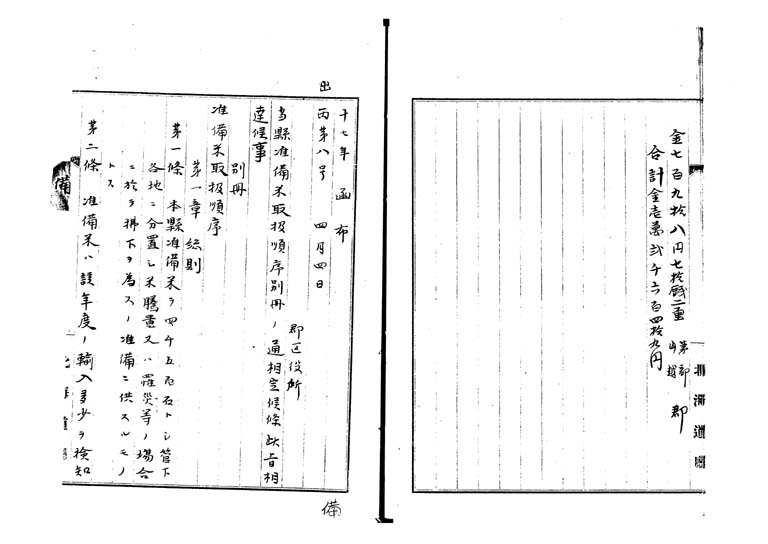 金七百九拾八円七拾銭二重
合計金壱萬弐千六百四拾九円
郡
出
十七年函布
丙第八号 四月四日
郡区役所
当縣准備米取扱順序別冊ノ通相定候條此旨相
達候事
別冊
准備米取扱順序
第一章 総則
第一條 本縣准備米ヲ四千五百石トシ管下
各地ニ分置シ米騰貴又ハ罹災等ノ場合
ニ於テ拂下ヲ為スノ准備ニ供スルモノ
トス
第二條 准備米ハ該年度ノ輸入多少ヲ検知
備
備